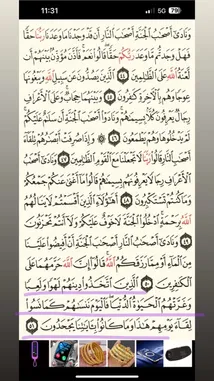 11:31
5G
وَنَادَىٰٓ أَصْحَٰبُ ٱلْجَنَّةِ أَصْحَٰبَ ٱلنَّارِ أَن قَدْ وَجَدْنَا مَا وَعَدَنَا رَبُّنَا حَقًّا
فَهَلْ وَجَدتُّم مَّا وَعَدَ رَبُّكُمْ حَقًّا قَالُوا۟ نَعَمْ فَأَذَّنَ مُؤَذِّنٌۢ بَيْنَهُمْ أَن
لَّعْنَةُ ٱللَّهِ عَلَى ٱلظَّٰلِمِينَ ٤٤ ٱلَّذِينَ يَصُدُّونَ عَن سَبِيلِ ٱللَّهِ وَيَبْغُونَهَا
عِوَجًا وَهُم بِٱلْءَاخِرَةِ كَٰفِرُونَ ٤٥ وَبَيْنَهُمَا حِجَابٌ وَعَلَى ٱلْأَعْرَافِ
رِجَالٌ يَعْرِفُونَ كُلًّۢا بِسِيمَىٰهُمْ وَنَادَوْا۟ أَصْحَٰبَ ٱلْجَنَّةِ أَن سَلَٰمٌ عَلَيْكُمْ
لَمْ يَدْخُلُوهَا وَهُمْ يَطْمَعُونَ ٤٦ وَإِذَا صُرِفَتْ أَبْصَٰرُهُمْ تِلْقَآءَ
أَصْحَٰبِ ٱلنَّارِ قَالُوا۟ رَبَّنَا لَا تَجْعَلْنَا مَعَ ٱلْقَوْمِ ٱلظَّٰلِمِينَ ٤٧ وَنَادَىٰٓ أَصْحَٰبُ
ٱلْأَعْرَافِ رِجَالًا يَعْرِفُونَهُم بِسِيمَىٰهُمْ قَالُوا۟ مَآ أَغْنَىٰ عَنكُمْ جَمْعُكُمْ
وَمَا كُنتُمْ تَسْتَكْبِرُونَ ٤٨ أَهَٰٓؤُلَآءِ ٱلَّذِينَ أَقْسَمْتُمْ لَا يَنَالُهُمُ
ٱللَّهُ بِرَحْمَةٍ ٱدْخُلُوا۟ ٱلْجَنَّةَ لَا خَوْفٌ عَلَيْكُمْ وَلَآ أَنتُمْ تَحْزَنُونَ ٤٩
وَنَادَىٰٓ أَصْحَٰبُ ٱلنَّارِ أَصْحَٰبَ ٱلْجَنَّةِ أَنْ أَفِيضُوا۟ عَلَيْنَا
مِنَ ٱلْمَآءِ أَوْ مِمَّا رَزَقَكُمُ ٱللَّهُ قَالُوٓا۟ إِنَّ ٱللَّهَ حَرَّمَهُمَا عَلَى
ٱلْكَٰفِرِينَ ٥٠ ٱلَّذِينَ ٱتَّخَذُوا۟ دِينَهُمْ لَهْوًا وَلَعِبًا
وَغَرَّتْهُمُ ٱلْحَيَوٰةُ ٱلدُّنْيَا فَٱلْيَوْمَ نَنسَىٰهُمْ كَمَا نَسُوا۟
لِقَآءَ يَوْمِهِمْ هَٰذَا وَمَا كَانُوا۟ بِـَٔايَٰتِنَا يَجْحَدُونَ ٥١